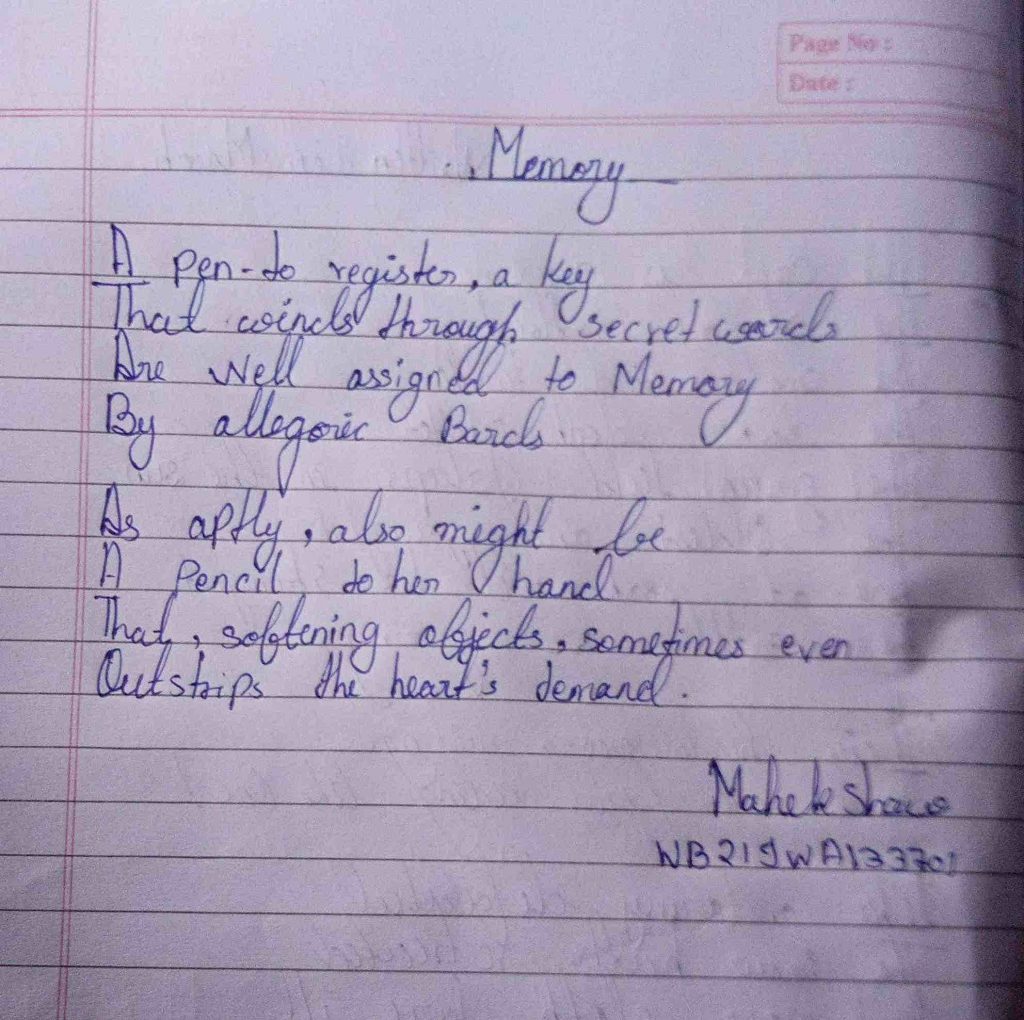 Page No :
Date :
Memory
A pen-to register, a key
That winds through secret wards
Are well assigned to Memory
By allegoric Bards.
As aptly, also might be
A Pencil to her hand
That, softening objects, sometimes even
Outstrips the heart's demand.
Mahek Shaw